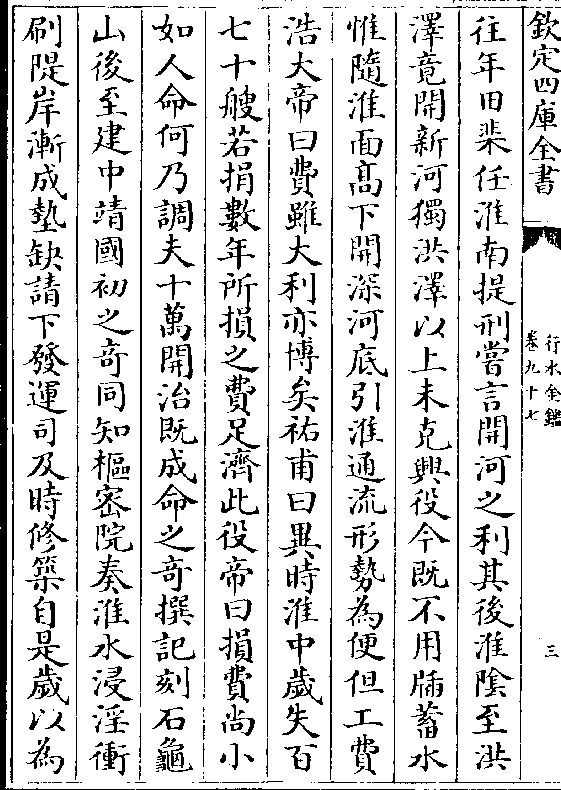 欽定四庫全書
行水金鑑
卷九十七
三
往年田棐任淮南提刑嘗言開河之利其後淮陰至洪
澤竟開新河獨洪澤以上未克興役今既不用牐蓄水
惟隨淮面髙下開深河底引淮通流形勢為便但工費
浩大帝曰費雖大利亦博矣祐甫曰異時淮中歲失百
七十艘若捐數年所損之費足濟此役帝曰損費尚小
如人命何乃調夫十萬開治既成命之竒撰記刻石龜
山後至建中靖國初之竒同知樞密院奏淮水浸淫衝
刷隄岸漸成墊缺請下發運司及時修築自是歲以為